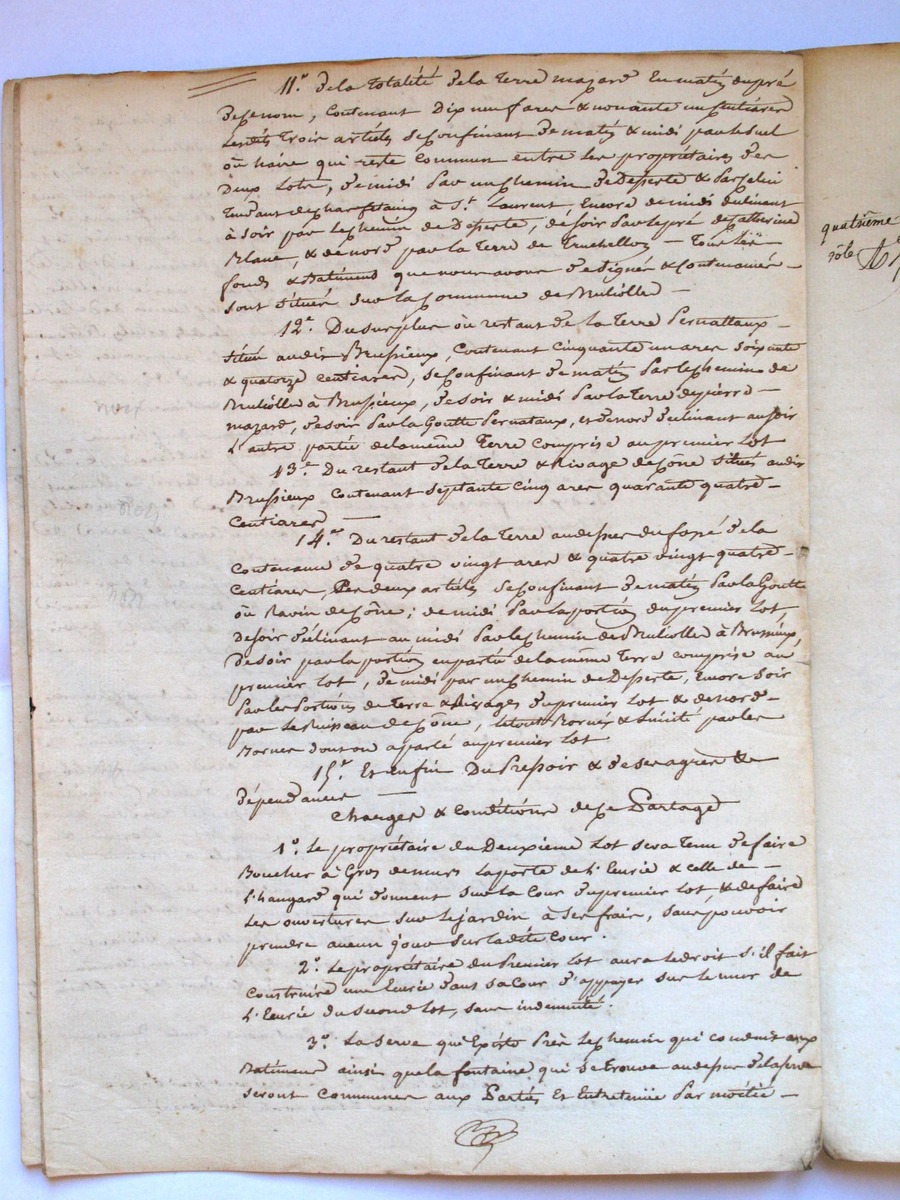 11.º De la totalité de la terre mazard en matin du pré
de ce nom, contenant Dix neuf ares & nonante un centiares
Lesdits trois articles se confinant de matin & midi par le suel
ou haire qui reste commun entre les propriétaires des
Deux Lots, de midi par un chemin de Desserte & par celui
tendant de à St. Laurent, Encore de midi déclinant
à soir par le chemin de Desserte, de soir par le pré de Catherine
Blanc, & de nord par la terre de Truchellos — Tous les
fonds & Batiments que nous avons désignés &
sont situés sur la Commune de Bruliolle —
12.º Du surplus ou restant de la terre Pernattaux —
située audit Brussieux, contenant cinquante un ares soixante
& quatorze centiares, se confinant de matin par le chemin de
Bruliolle à Brussieux, de soir & midi par la terre de pierre —
mazard, de soir par la Goutte Pernataux, et de nord déclinant au soir
l'autre partie de la même terre comprise au premier Lot
13.º Du restant de la terre & Rivage de Cône situés audit
Brussieux contenant septante cinq ares quarante quatre —
centiares —
14.º Du restant de la terre au dessus du fossé de la
contenance de quatre vingt ares & quatre vingt quatre —
centiares, Ces deux articles se confinant de matin par la Goutte
ou Ravin de Cône; de midi par la portion du premier Lot,
de soir déclinant au midi par le chemin de Bruliolle à Brussieux,
de soir par la portion en partie de la même terre comprise au
premier Lot, de midi par un chemin de Desserte, encore soir
par les Portions de terre & Rivages du premier Lot & de Nord —
par le Ruisseau de Cône, le tout Borné & Limité par les
Bornes dont on a parlé au premier Lot
15.º Et enfin Du Pressoir & de ses agrès &
Dépendances —
Charges & Conditions de ce Partage
1º. Le propriétaire du Deuxième Lot sera tenu de faire
Boucher à Gros de murs la porte de l'Eurie & celle de —
l'hangard qui donnent sur la Cour du premier Lot & de faire
Les ouvertures sur le jardin à ses frais, sans pouvoir
prendre aucun jour sur ladite Cour.
2º. Le propriétaire du Premier Lot aura le droit s'il fait
construire une Eurie dans sa Cour d'appuyer sur le mur de
l'Eurie du second Lot, sans indemnité.
3º. La serve qui Existe Près le chemin qui conduit aux
Batimens ainsi que la fontaine qui se trouve au dessus de la serve
seront communes aux Parties Et Entretenüe par moitié —
quatrième
rôle